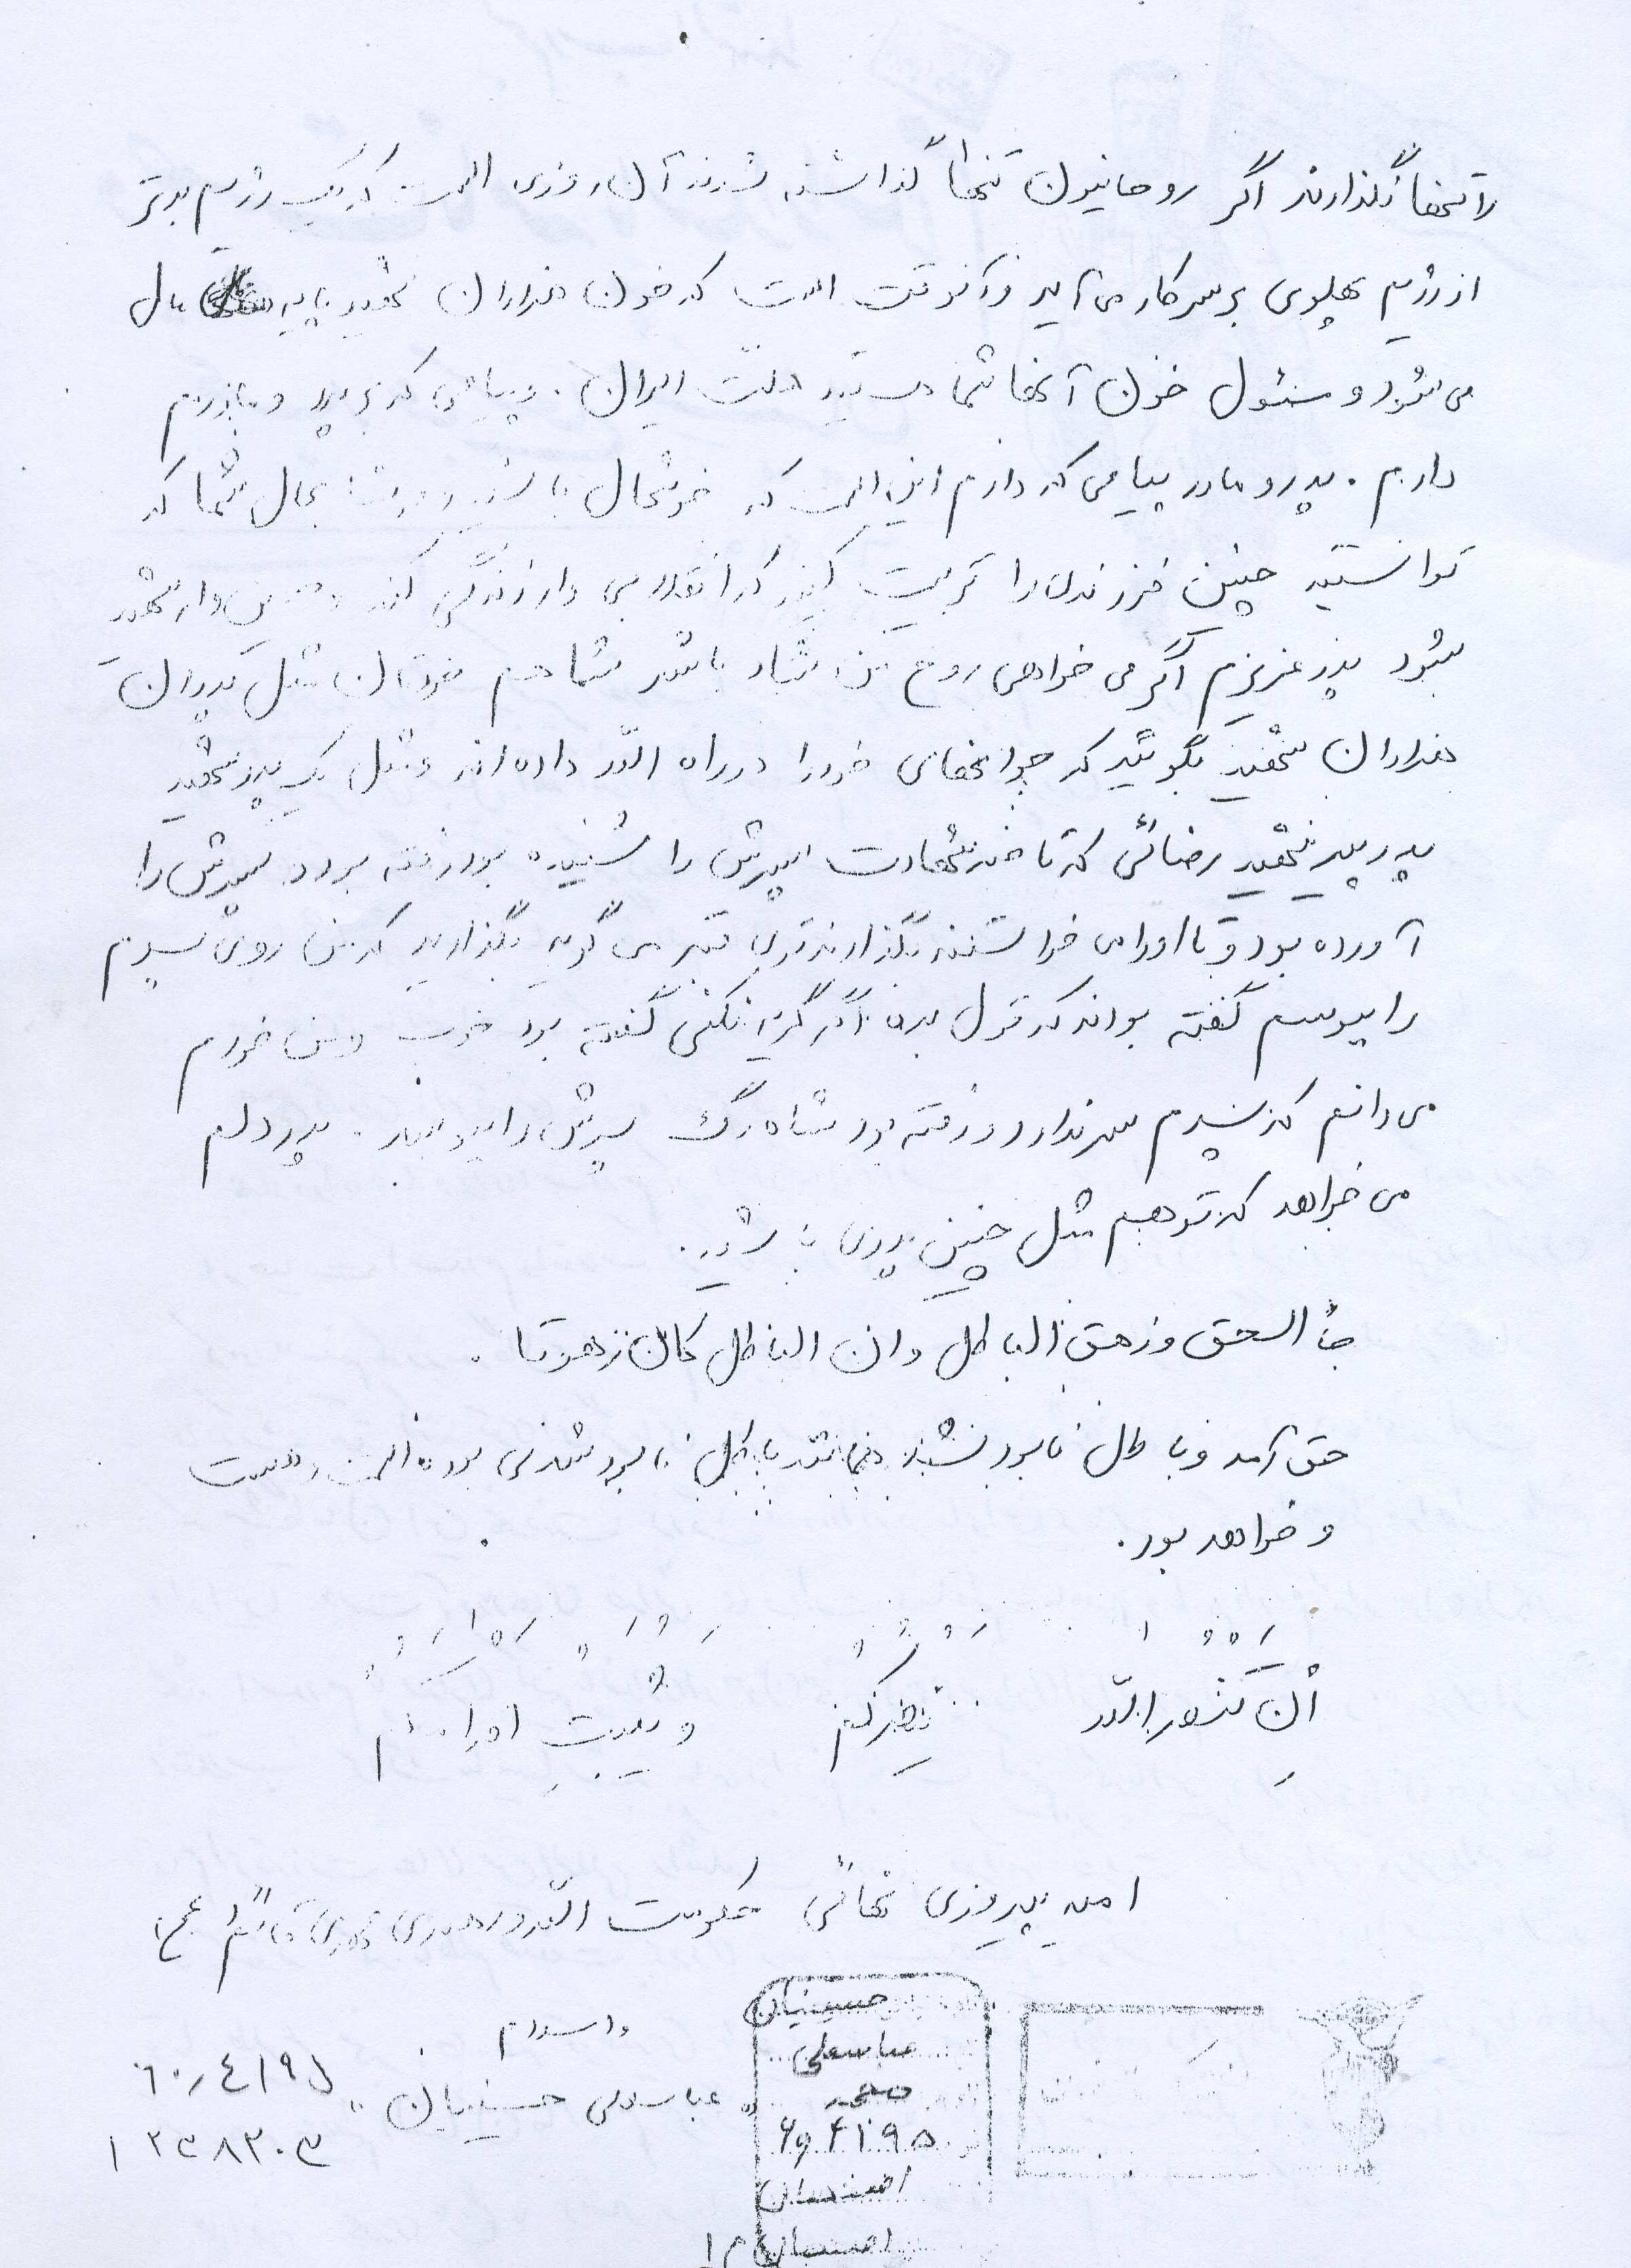 را تنها نگذارند اگر روحانیون تنها گذاشته شدند آن روزی است که یک رژیم بدتر
از رژیم پهلوی بر سر کار می آید و آنوقت است که خون هزاران شهید پایمال
می شود و مسئول خون آنها شما هستید ملت ایران . و پیامی که بر پدر و مادرم
دارم . پدر و مادر پیامی که دارم این است که خوشحال باشید و بحال شما که
توانستید چنین فرزندی را تربیت کنید که زندگی کند و شهید
بشود پدر عزیزم اگر می خواهی روح من شاد باشد شما هم خودتان مثل پدران
هزاران شهید بگوئید که جوانهای خود را در راه الله داده اند مثل یک پدر شهید
پدر پیر شهید رضائی که تا خبر شهادت پسرش را شنیده بود رفته بود پسرش را
آورده بود و تا او را می خواستند بگذارند توی قبر می گوید بگذارید که من روی پسرم
را ببوسم گفته بودند که قول بده اگر گریه نکنی گفته بود خوب من خودم
می دانم که پسرم سر ندارد و رفته بود شاه رگ پسرش را ببوسد . پدر دلم
می خواهد که تو هم مثل چنین پدری باشید .
جاء الحق و زهق الباطل و ان الباطل کان زهوقا .
حق آمد و باطل نابود شد همانند باطل نابود شدنی بوده است و هست
و خواهد بود .
اِنْ تنصروا الله ینصرکم و یثبت اقدامکم
امید پیروزی نهائی حکومت الله و رهبری مهدی قائم عج
والسلام
" عباسعلی حسینیان "
حسینیان
عباسعلی
محمد